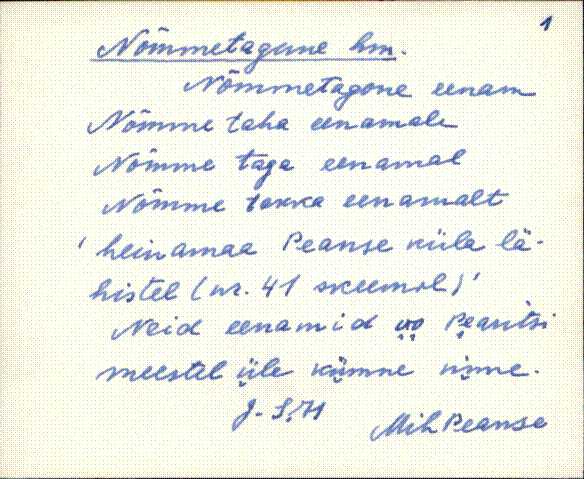 1
Nõmmetagune hm.
Nõmmetagone eenam
Nõmme taha eenamale
Nõmme taga eenamal
Nõmme takka eenamalt
'heinamaa Peanse küla lä-
histel (nr. 41 skeemil)'
Neid eenamid oo Peantsi
meestel üle kümne
J. S. 71
Mih Peanse